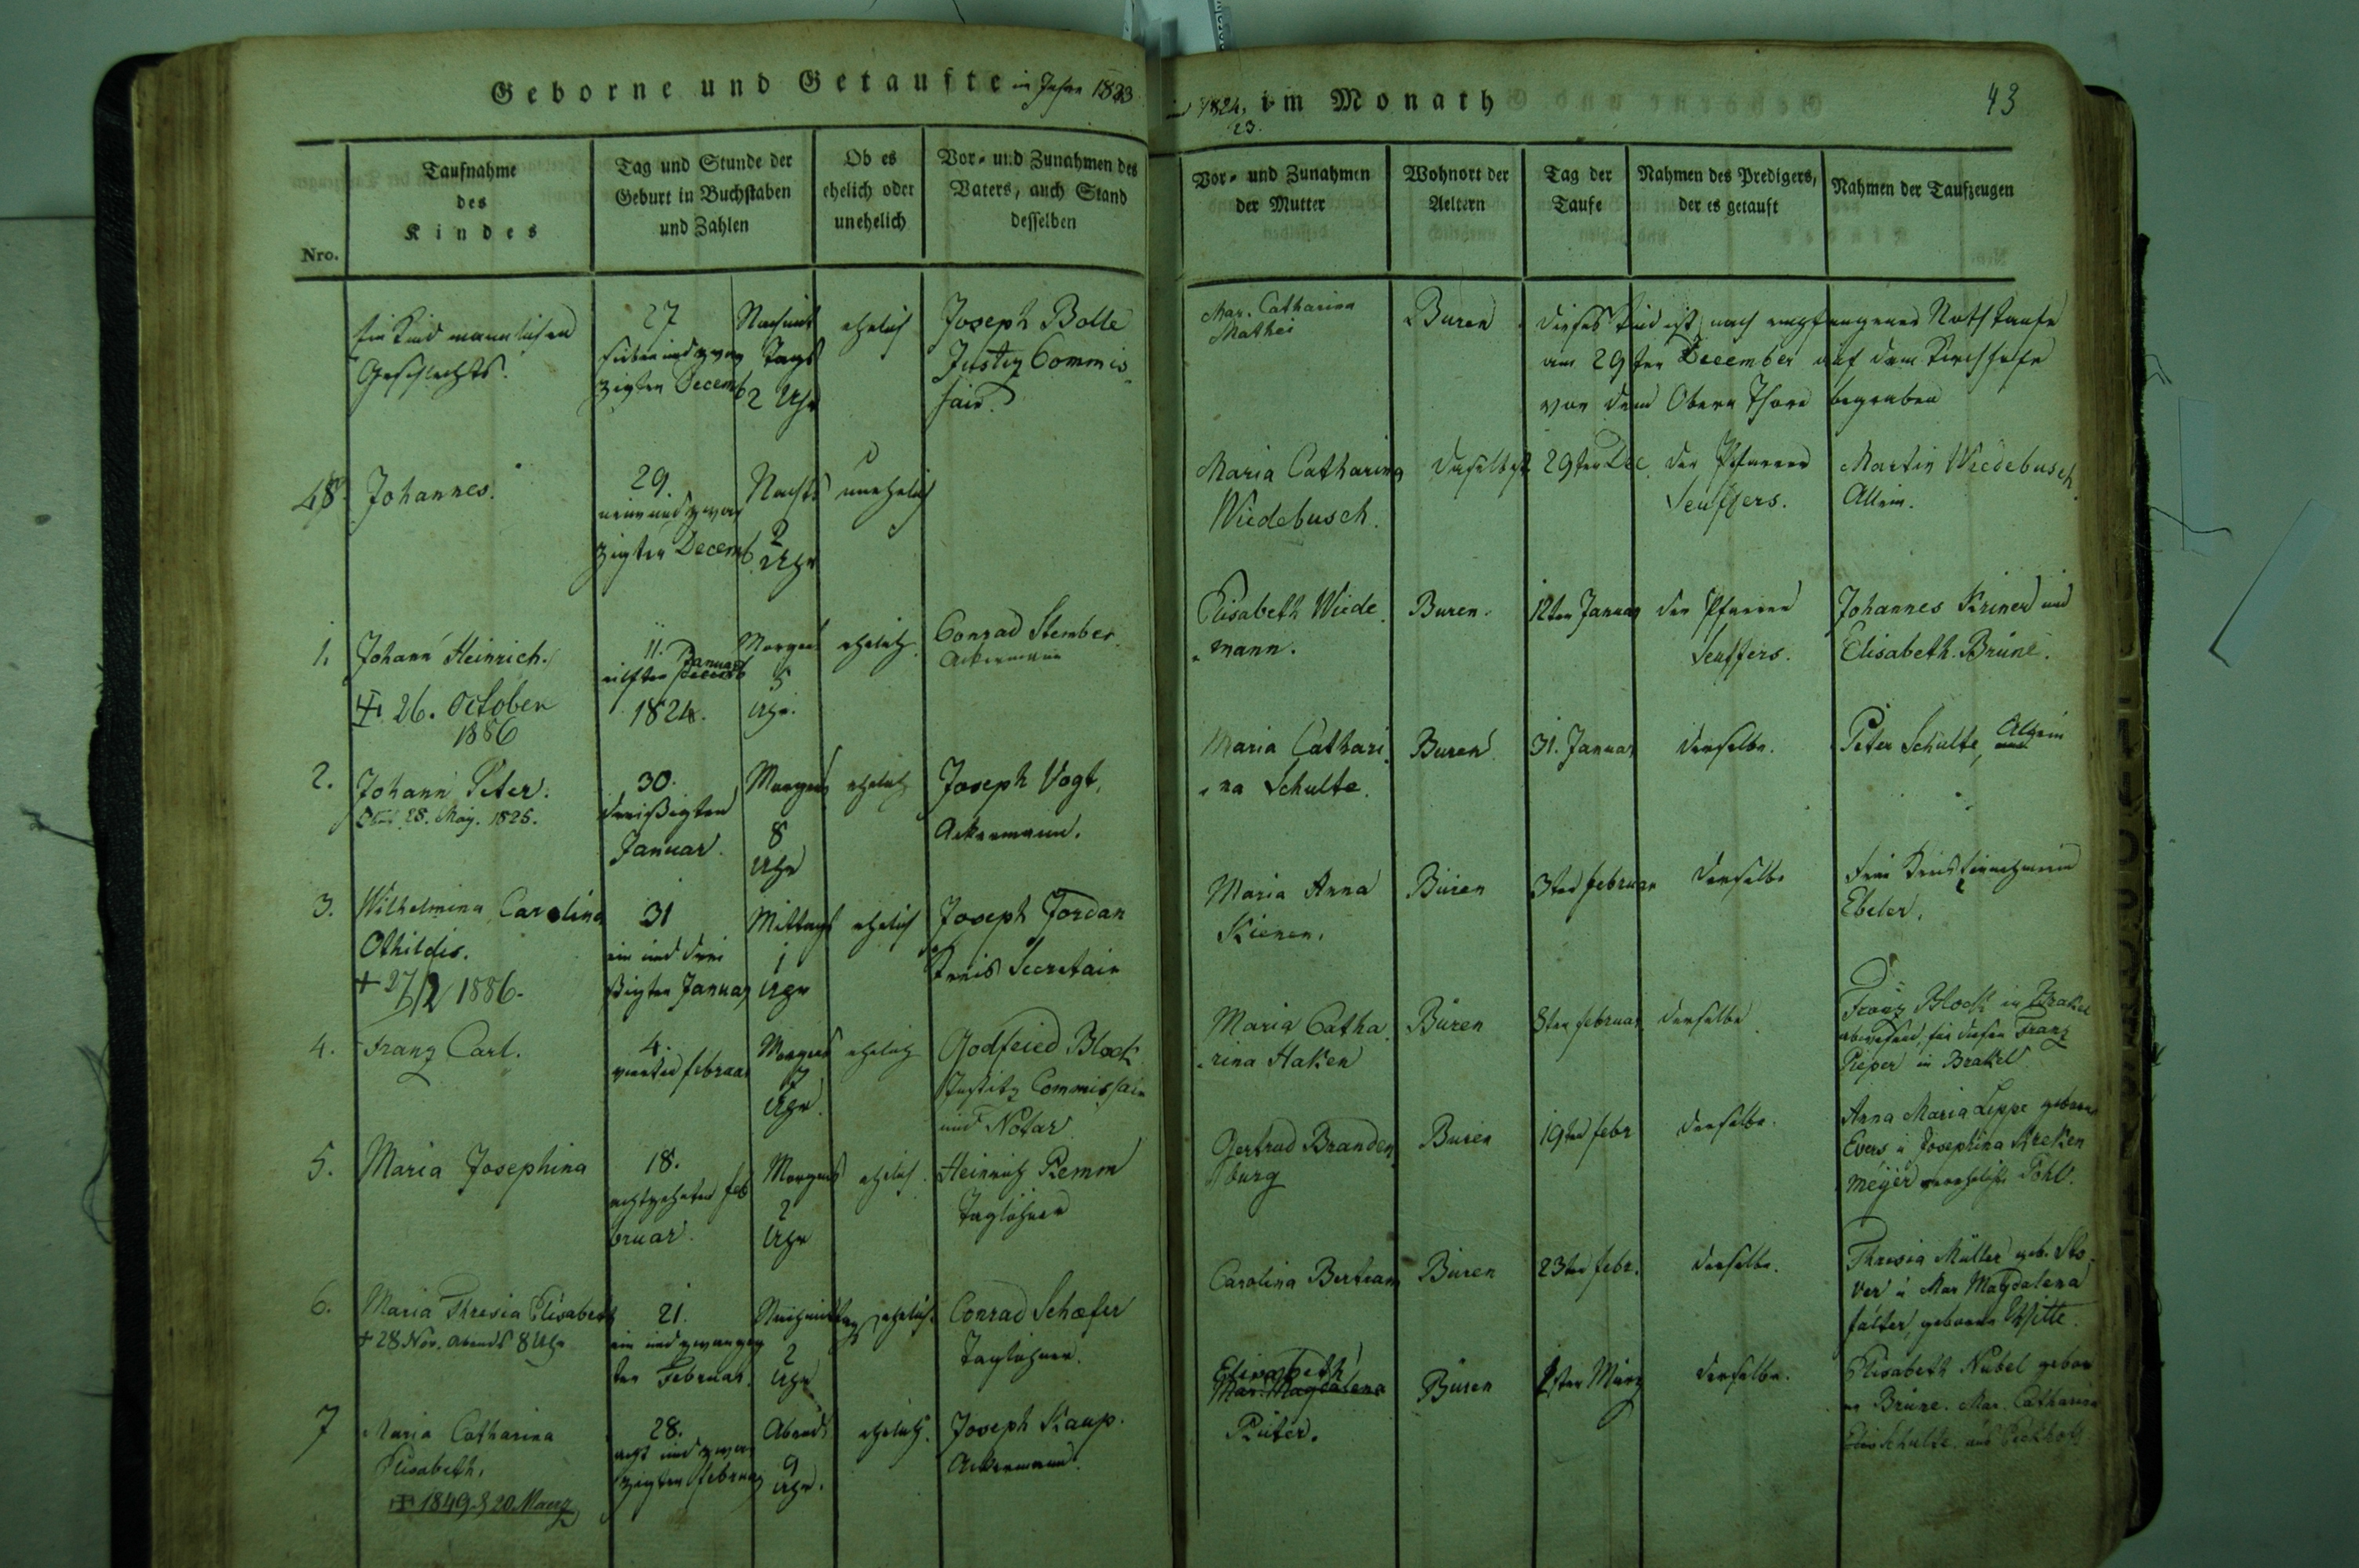 Geborne und Getaufte im Jahre 1823
1824. im Monath
23.
43
Nro.
Taufnahme
des
Kindes
Tag und Stunde der
Geburt in Buchstaben
und Zahlen
Ob es
ehelich oder
unehelich
Vor- und Zunahmen des
Vaters, auch Stand
desselben
Vor- und Zunahmen
der Mutter
Wohnort der
Aeltern
Tag der
Taufe
Nahmen des Predigers,
der es getauft
Nahmen der Taufzeugen
Ein Kind männlichen
Geschlechts.
27
sieben und zwan
zigten Decemb
Nachmit
Tags
2 Uhr
ehelich
Joseph Bolle
Justiz Commis
sair.
Mar. Catharina
Mathei
Buren
dieses Kind ist nach empfangener Nothtaufe
am 29ten December auf dem Kirchhofe
vor dem Obern Thore begraben
48. Johannes.
29.
neun und zwan
zigten Decemb
Nachts
2
Uhr
unehelich
Maria Catharina
Wiedebusch.
daselbst
29ten Dec.
der Pfarrer
Seuffers.
Martin Wiedebusch
Allein.
1. Johann Heinrich.
26. October
1886
11.
eilften Januar
1824.
Morgens
5
Uhr.
ehelich
Conrad Stember
Ackermann
Elisabeth Wiede
mann.
Buren.
12ten Januar
der Pfarrer
Seuffers.
Johannes Kriner und
Elisabeth Brüne.
2. Johann Peter.
Obiit 28. May. 1825.
30.
dreißigten
Januar.
Morgens
8
Uhr
ehelich
Joseph Vogt,
Ackermann.
Maria Cathari
na Schulte.
Buren
31. Januar
derselbe.
Peter Schulte, Allein
3. Wilhelmina Carolina
Othildis.
+ 27/2 1886.
31
ein und drei
ßigten Januar
Mittags
1
Uhr
ehelich
Joseph Jordan
Kreis Secretair
Maria Anna
Kienen.
Büren
3ten februar
derselbe
Frau Kreis Einnehmerin
Ebeler.
4. Franz Carl.
4.
vierten februar
Morgens
7
Uhr.
ehelich
Godfried Block
Justitz Commissair
und Notar
Maria Catha
rina Haken
Büren
8ten februar
derselbe
Franz Block in Brakel
abwesend, für diesen Franz
Pieper in Brakel
5. Maria Josephina
18.
achtzehnten feb
bruar.
Morgens
2
Uhr
ehelich.
Heinrich Remm
Taglöhner
Gertrud Branden
burg
Buren
19ten febr
derselbe.
Anna Maria Leppe geborne
Evers u Josephina Kreken
meyer verehelicht Pohl.
6. Maria Thresia Elisabeth
+ 28 Nov. Abends 8 Uhr
21.
ein und zwanzig
ten Februar.
Nachmittags
2
Uhr
ehelich.
Conrad Schæfer
Taglöhner.
Carolina Bertram
Büren
23ten febr.
derselbe.
Thresia Müller geb. Sto
ver u Mar Magdalena
falter, geborne Witte.
7 Maria Catharina
Elisabeth,
1849 d 20 Maerz
28.
acht und zwan
zigten februar
Abends
9
Uhr.
ehelich.
Joseph Kaup.
Ackermann.
Elisabeth
Mar. Magdalena
Rüter.
Büren
1ten März
derselbe.
Elisabeth Nübel gebor
ne Brüne. Mar. Catharina
Schulte aus